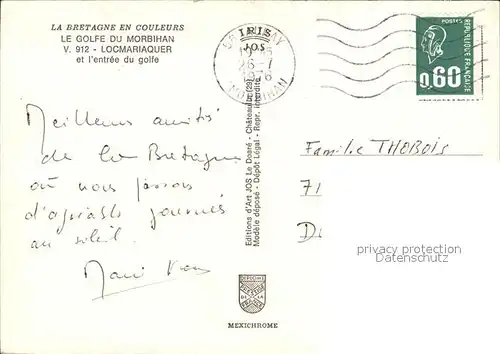 LA BRETAGNE EN COULEURS
LE GOLFE DU MORBIHAN
V. 912 - LOCMARIAQUER
et l'entrée du golfe
Meilleures amitiés
de la Bretagne
où nous passons
d'agréables journées
au soleil.
IRIS
JOS
26-7
MORBIHAN
Editions d'Art JOS Le Doaré - Châteaulin (29)
Modèle déposé - Dépôt Légal - Repr. interdite
MEXICHROME
POSTES
REPUBLIQUE FRANÇAISE
0,60
Famille THEBOIS
71
D
privacy protection
watermark